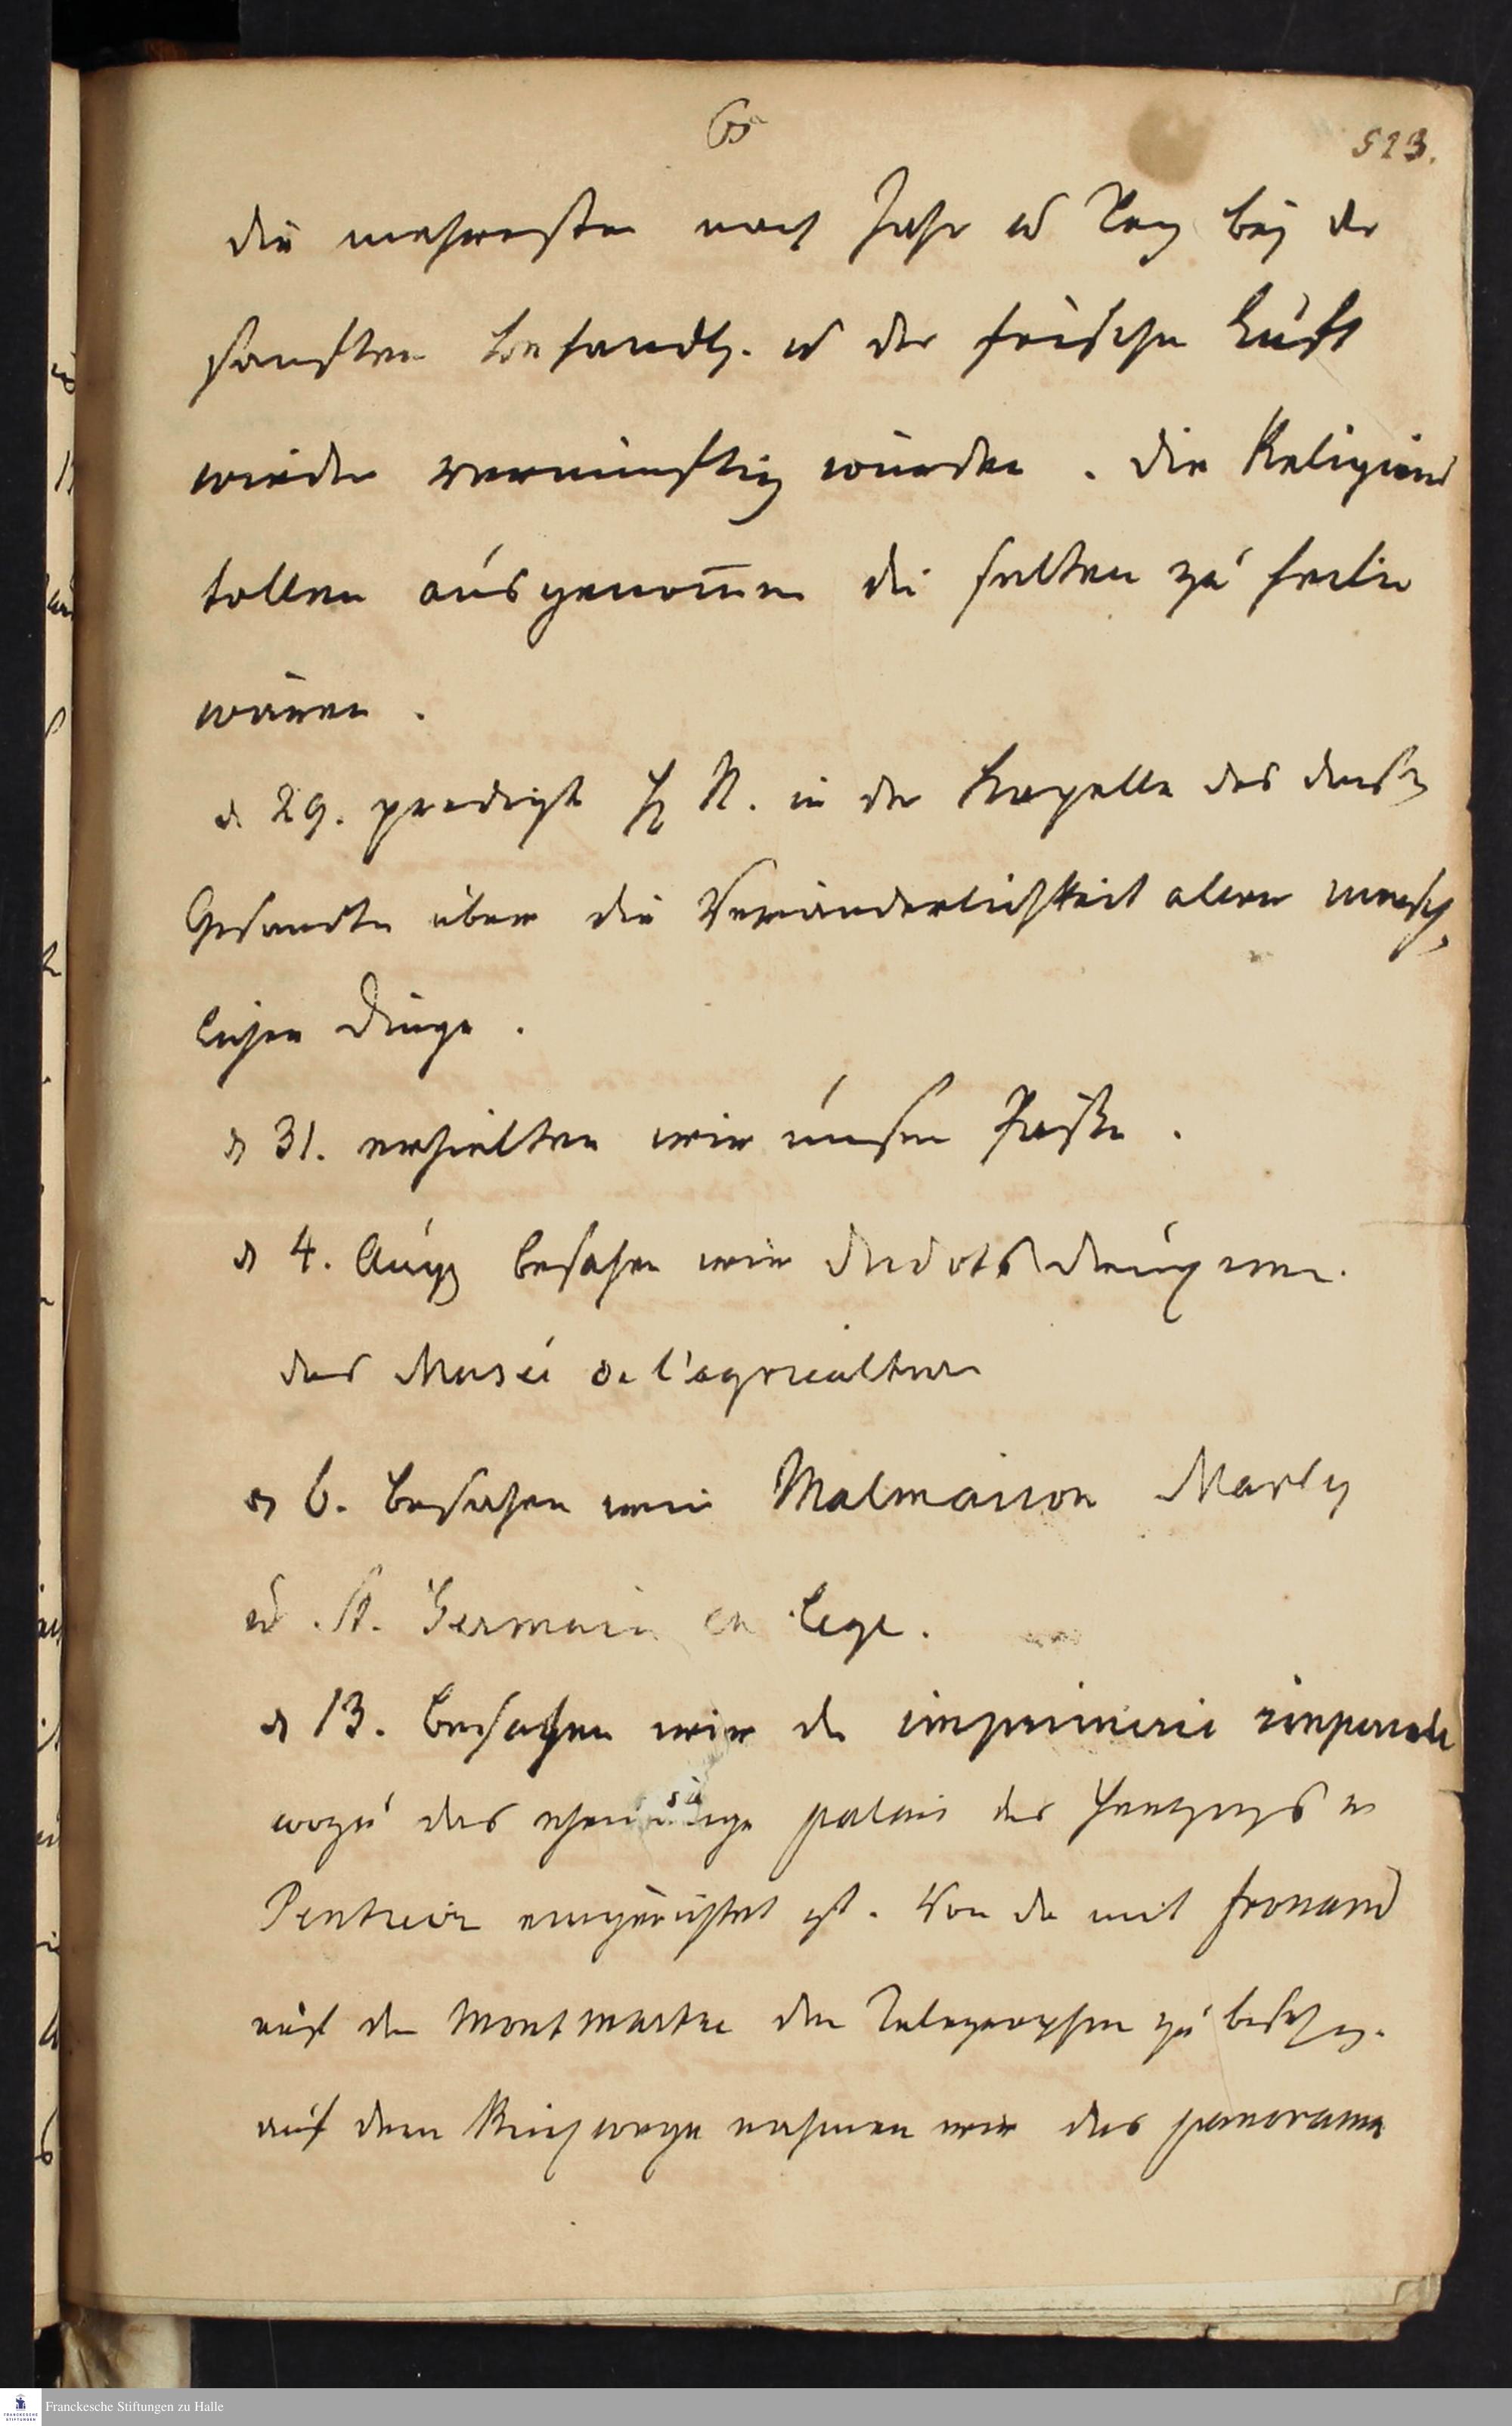 65
523.
die mehresten nach Jahr u Tag bey der
sanften behandlg. u der frischen Luft
wieder vernünftig würden. die Religions
tollen ausgenommen die selten zu heilen
wären.
d 29. predigt H N. in der Kapelle des
Gesandten über die Veränderlichkeit aller mensch,
lichen Dinge.
d 31. erhielten wir unsere Päße.
d 4. Aug besahen wir Didots
das Museé de l'agriculture
d 6. besahen wir Malmaison Marly
u St. Germain en Leye.
d 13. besahen wir die imprimerie imperiale
wozu das palais des Herzogs v
Pentievr eingerichtet ist. Von da mit
auf den Montmartre den Telegraphen zu
auf dem Rückwege nahmen wir das panorama
Franckesche Stiftungen zu Halle